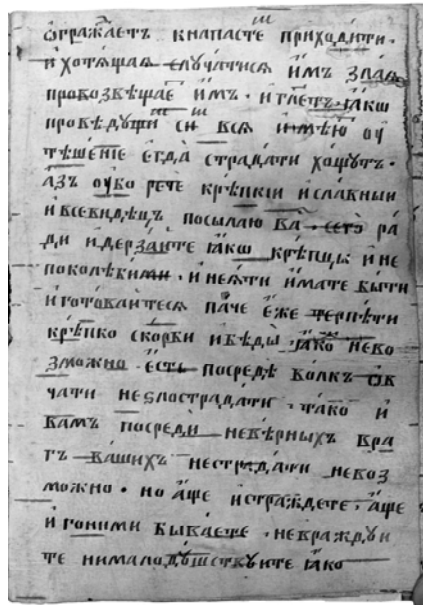 ѡгражаетъ кнапасте приходити·
и хотящая слꙋчатися имъ злая
провозвѣщае имъ· и глетъ ꙗкѡ
провѣдꙋщи си вся имѣю оу
тѣшенїе егда страдати хощꙋтъ·
азъ оубо рече крѣпкїи иславныи
ивсевидецъ посылаю ва· сего ра
ди идерзаите ꙗкѡ крѣпцы ине
поколѣбими· инеяти имате быти
иготоваитеся паче еже терпѣти
крѣпко скорби ибѣды ꙗко нево
зможно есть посредѣ волкъ ѡв
чати неѕлострадати· тако и
вамъ посреди невѣрныхъ вра
тъ вашихъ нестрадати невоз
можно· но аще истраждете· аще
и гоними бываете· невраждꙋи
те нималодꙋшствꙋите ꙗко